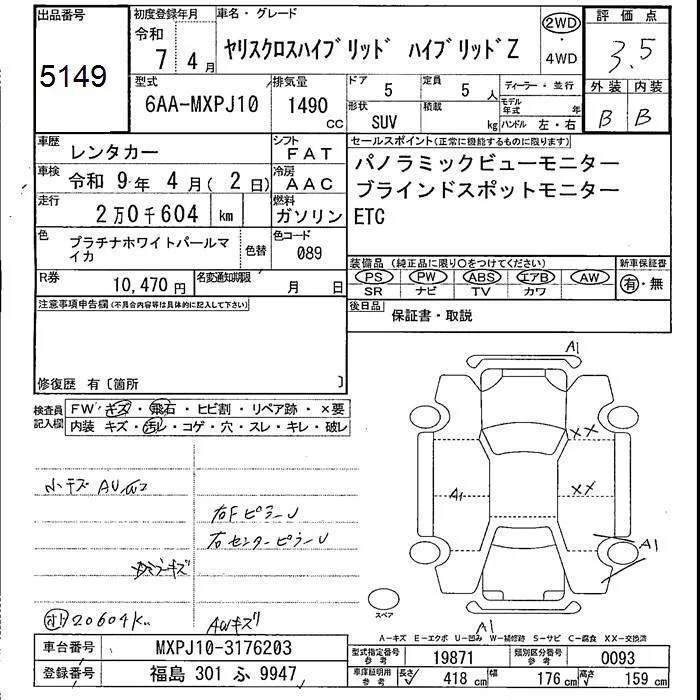 出品番号
5149
初度登録年月
令和
7年 4月
車名・グレード
ヤリスクロスハイブリッド ハイブリッドZ
2WD
・
4WD
評価点
3.5
外装 内装
B B
型式
6AA-MXPJ10
排気量
1490
CC
ドア
5
定員
5人
形状
SUV
積載
kg
ディーラー・並行
モデル年式 年
ハンドル 左・右
車歴
レンタカー
シフト
FAT
車検
令和 9年 4月(2日)
冷房
AAC
走行
2万0千604 km
燃料
ガソリン
色
プラチナホワイトパールマイカ
色替
色コード
089
R券
10,470円
名変通知期限
月 日
セールスポイント(正常に機能するものに限ります)
パノラミックビューモニター
ブラインドスポットモニター
ETC
装備品(純正品に限り○をつけてください)
PS PW ABS エアB AW
SR ナビ TV カワ
新車保証書
有・無
後日品
保証書・取説
注意事項申告欄(不具合内容等は具体的に記入して下さい)
修復歴 有〔箇所 〕
検査員記入欄
FW キズ・飛石・ヒビ割・リペア跡・×要
内装 キズ・汚レ・コゲ・穴・スレ・キレ・破レ
小キズ AU
右FピラーU
右センターピラーU
ミラーキズ
20604K
AWキズ
A1
XX
A1
XX
A1
A1
スペア
A-キズ E-エクボ U-凹み W-補修跡 S-サビ C-腐食 XX-交換済
車台番号
MXPJ10-3176203
登録番号
福島 301 ふ 9947
型式指定番号
参考
19871
類別区分番号
参考
0093
車庫証明用
参考
長さ
418 cm
幅
176 cm
高さ
159 cm